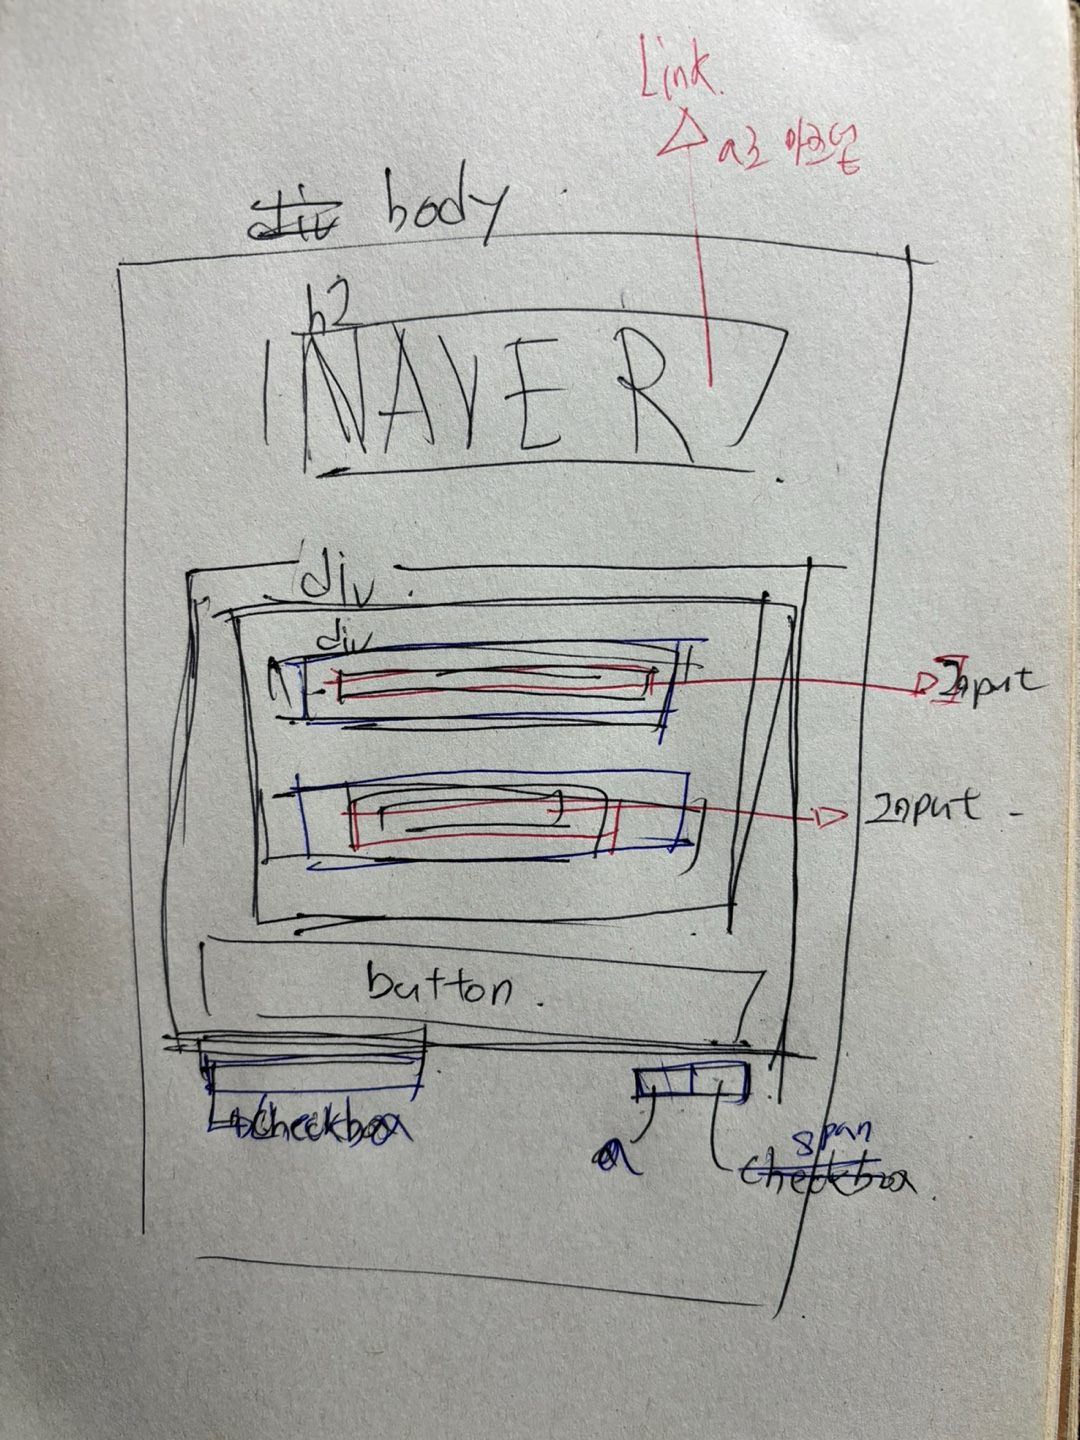 Link.
a로
div body
h2
NAVER
div.
div
Input
Input
button.
checkbox
a
span
checkbox.